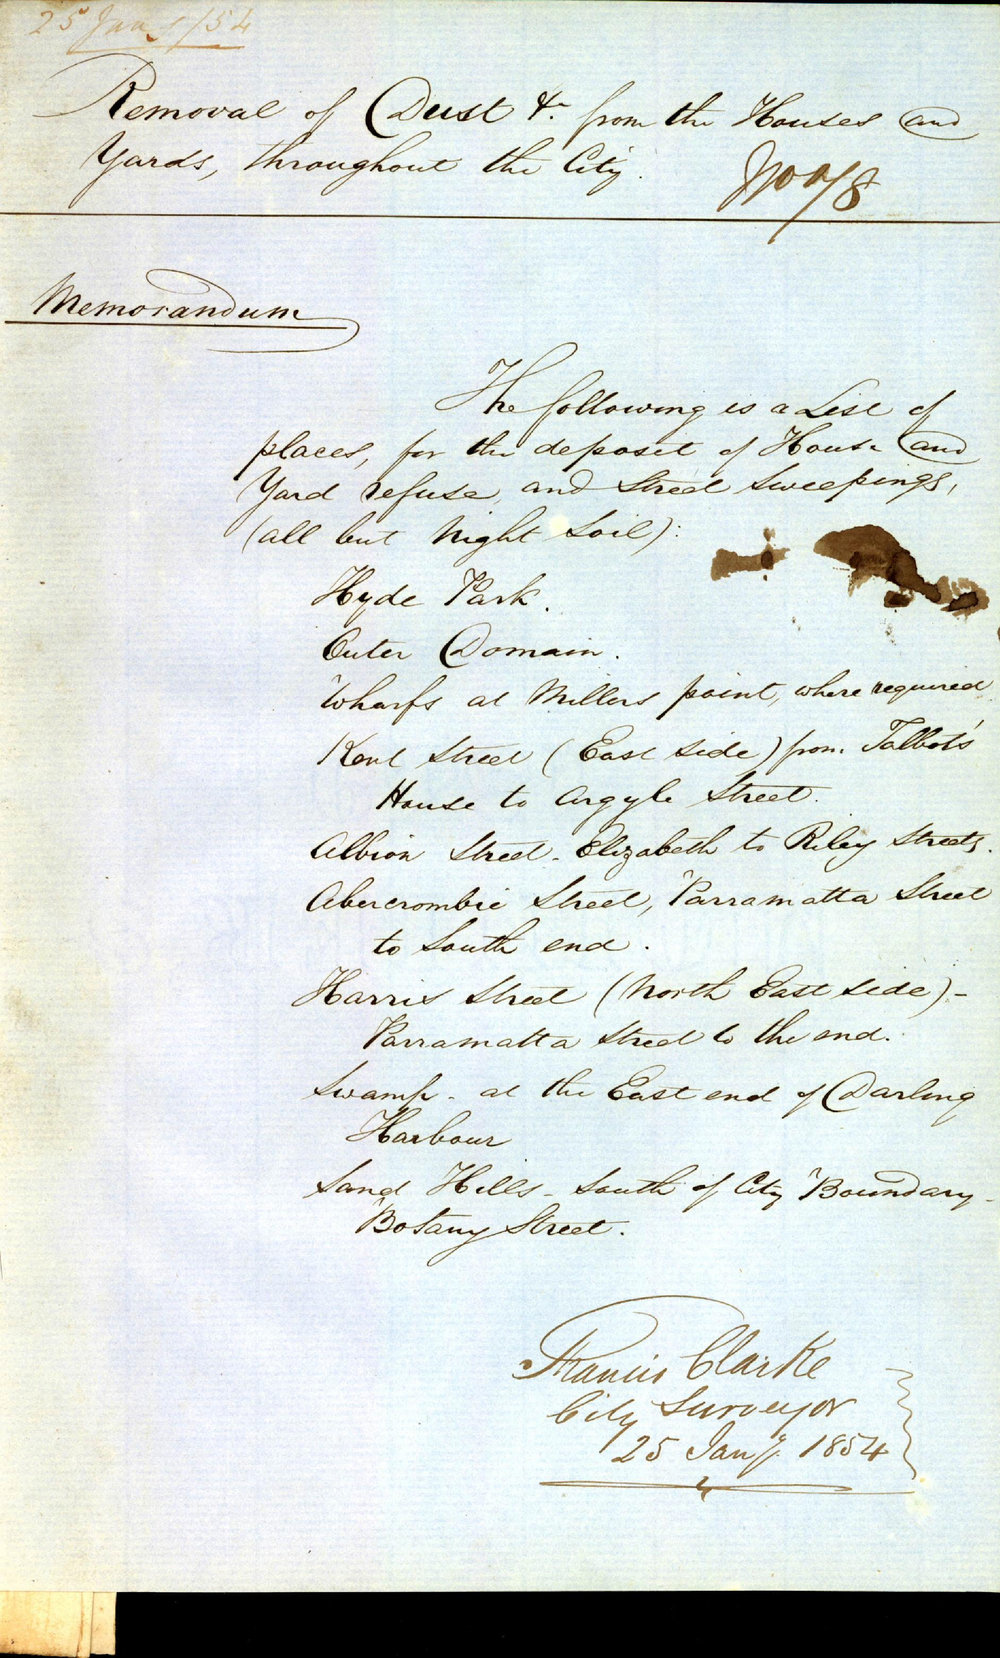 25 Jany /54
Removal of Dust &c. from the Houses and
Yards, throughout the City.
No 78
Memorandum
The following is a List of
places, for the deposit of House and
Yard refuse, and Street Sweepings,
(all but Night Soil):
Hyde Park.
Outer Domain.
Wharfs at Millers point, where required
Kent Street (East side) from Talbot's
House to Argyle Street.
Albion Street - Elizabeth to Riley Streets.
Abercrombie Street, Parramatta Street
to South end.
Harris Street (North East side) -
Parramatta Street to the end.
Swamp - at the East end of Darling
Harbour
Sand Hills - South of City Boundary -
Botany Street.
Francis Clarke
City Surveyor
25 Jany. 1854